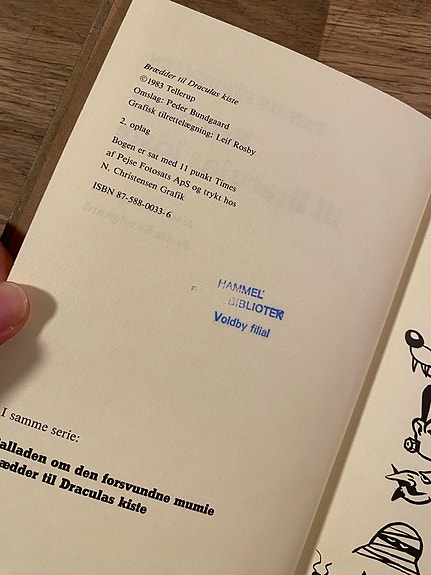 Brædder til Draculas kiste
©1983 Tellerup
Omslag: Peder Bundgaard
Grafisk tilrettelægning: Leif Rosby
2. oplag
Bogen er sat med 11 punkt Times
af Pejse Fotosats ApS og trykt hos
N. Christensen Grafik
ISBN 87-588-0033-6
HAMMEL
BIBLIOTEK
Voldby filial
I samme serie:
alladen om den forsvundne mumie
ædder til Draculas kiste